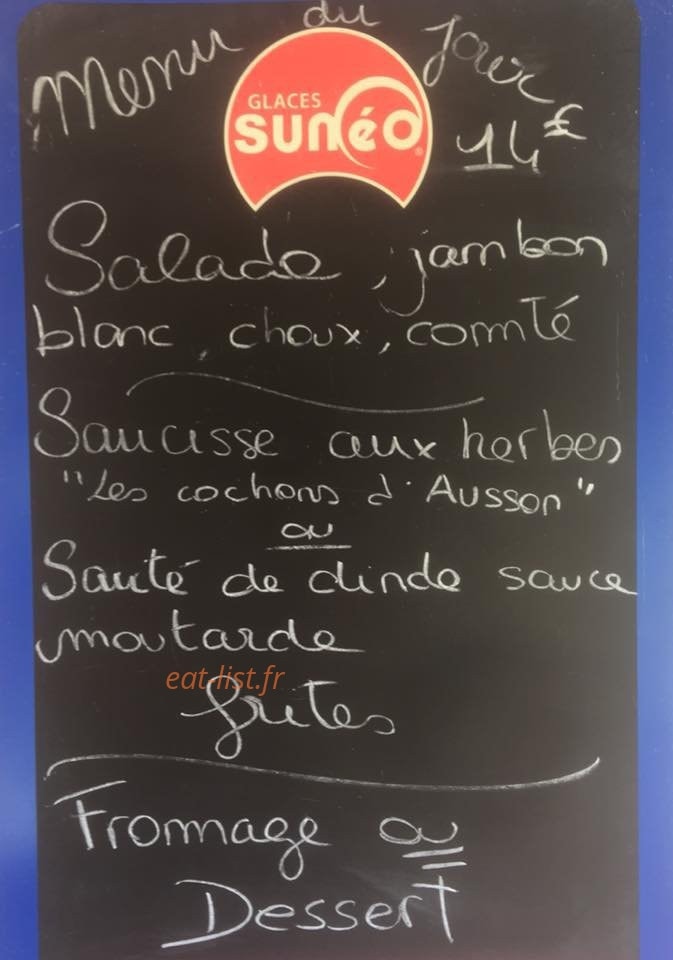 Menu du Jour
GLACES
sunéo
14€
Salade, jambon
blanc, choux, comté
Saucisse aux herbes
"Les cochons d'Ausson"
ou
Sauté de dinde sauce
moutarde
eat-list.fr
frites
Fromage ou
Dessert